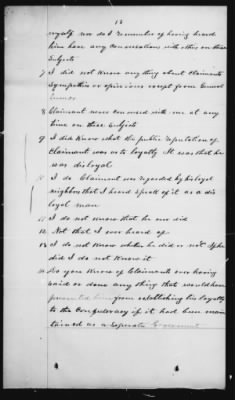 13
myself nor do I remember of having heard
him have any conversations with others on these
subjects
7 I did not know any thing about Claimants
Sympathies or opinions except from General
8 Claimant never conversed with me at any
time on these subjects
9 I did know what the public reputation of
Claimant was as to loyalty It was that he
was disloyal
10 I do Claimant was regarded by his loyal
neighbors that I heard speak of it as a dis
loyal man
11 I do not know that he ever did
12 Not that I ever heard of
13 I do not know whether he did or not If he
did I do not know it
14 Do you know of Claimants ever having
said or done any thing that would have
prevented him from establishing his loyalty
to the Confederacy if it had been main
tained as a seperate Government